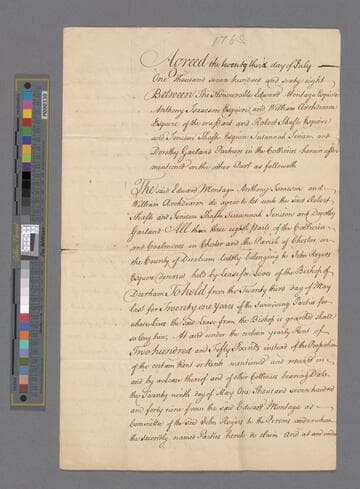 1768
Agreed the twenty third day of July
One thousand seven hundred and sixty eight
Between The Honourable Edward Montagu Esquire
Anthony Isaacson Esquire and William Archdeacon
Esquire of the one part and Robert Shafto Esquire
and Jenison Shafto Esquire Susannah Jenison and
Dorothy Garland Partners in the Collieries herein after
mentioned on the other Part as followeth
The said Edward Montagu Anthony Isaacson and
William Archdeacon do agree to let unto the said Robert
Shafto and Jenison Shafto Susannah Jenison and Dorothy
Garland All those three eighth parts of the Collieries
and Coalmines in Chester and the Parish of Chester in
the County of Durham lately belonging to John Rogers
Esquire deceased held by Lease for Lives of the Bishop of
Durham To hold from the Twenty third day of May
last for Twenty one Years if the surviving Parties for
whose lives the said Lease from the Bishop is granted shall
so long live At and under the certain yearly Rent of
Two hundred and Fifty Pounds instead of the Proportion
of the certain Rent or Rents mentioned and reserved in
and by a Lease thereof and of other Collieries bearing Date
the Twenty ninth day of May One Thousand seven hundred
and forty nine from the said Edward Montagu as
Committee of the said John Rogers to the Persons under whom
the secondly named Parties hereto do claim And at and under